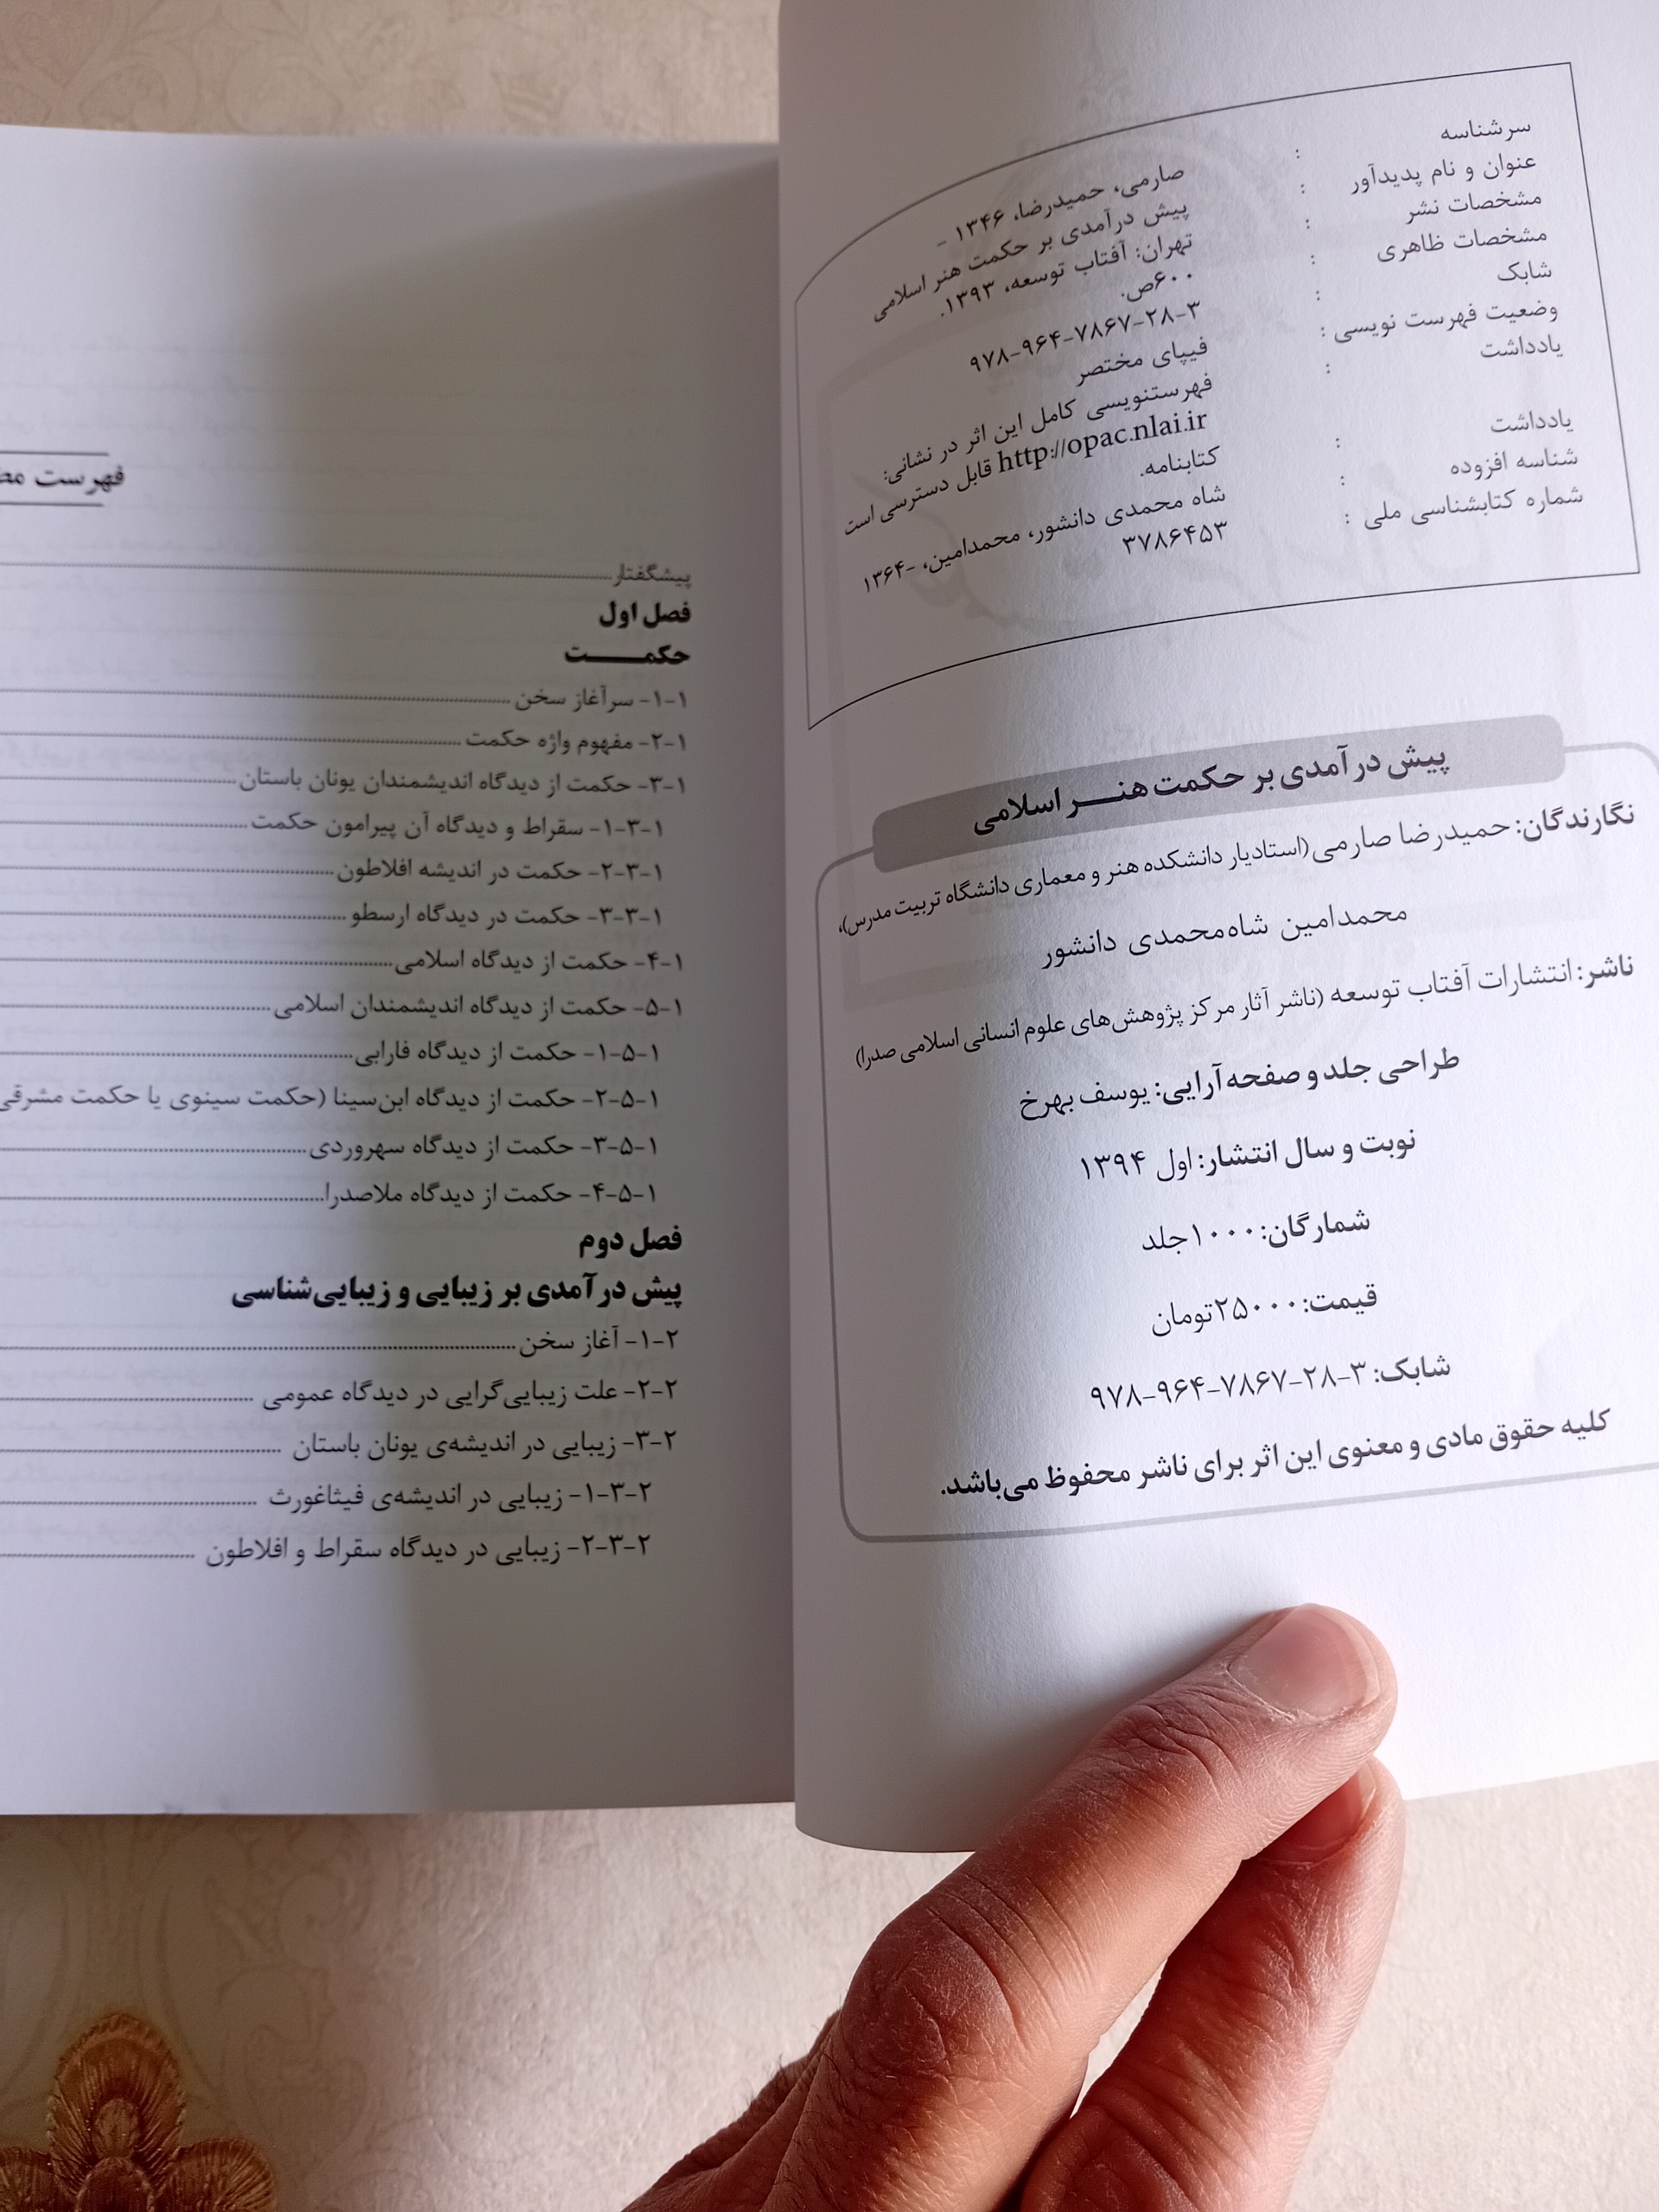 سرشناسه : صارمی، حمیدرضا، ۱۳۴۶ -
عنوان و نام پدیدآور : پیش درآمدی بر حکمت هنر اسلامی
مشخصات نشر : تهران: آفتاب توسعه، ۱۳۹۳.
مشخصات ظاهری : ۶۰۰ص.
شابک : ۹۷۸-۹۶۴-۷۸۶۷-۲۸-۳
وضعیت فهرست نویسی : فیپای مختصر
یادداشت : فهرستنویسی کامل این اثر در نشانی:
http://opac.nlai.ir قابل دسترسی است
یادداشت : کتابنامه.
شناسه افزوده : شاه محمدی دانشور، محمدامین، -۱۳۶۴
شماره کتابشناسی ملی : ۳۷۸۶۴۵۳
پیش درآمدی بر حکمت هنــر اسلامی
نگارندگان: حمیدرضا صارمی(استادیار دانشکده هنر و معماری دانشگاه تربیت مدرس)،
محمدامین شاه‌محمدی دانشور
ناشر: انتشارات آفتاب توسعه (ناشر آثار مرکز پژوهش‌های علوم انسانی اسلامی صدرا)
طراحی جلد و صفحه‌آرایی: یوسف بهرخ
نوبت و سال انتشار: اول ۱۳۹۴
شمارگان: ۱۰۰۰جلد
قیمت: ۲۵۰۰۰تومان
شابک: ۹۷۸-۹۶۴-۷۸۶۷-۲۸-۳
کلیه حقوق مادی و معنوی این اثر برای ناشر محفوظ می‌باشد.
فهرست
پیشگفتار
فصل اول
حکمــــت
۱-۱- سرآغاز سخن
۱-۲- مفهوم واژه حکمت
۱-۳- حکمت از دیدگاه اندیشمندان یونان باستان
۱-۳-۱- سقراط و دیدگاه آن پیرامون حکمت
۱-۳-۲- حکمت در اندیشه افلاطون
۱-۳-۳- حکمت در دیدگاه ارسطو
۱-۴- حکمت از دیدگاه اسلامی
۱-۵- حکمت از دیدگاه اندیشمندان اسلامی
۱-۵-۱- حکمت از دیدگاه فارابی
۱-۵-۲- حکمت از دیدگاه ابن‌سینا (حکمت سینوی یا حکمت مشرقی
۱-۵-۳- حکمت از دیدگاه سهروردی
۱-۵-۴- حکمت از دیدگاه ملاصدرا
فصل دوم
پیش درآمدی بر زیبایی و زیبایی‌شناسی
۲-۱- آغاز سخن
۲-۲- علت زیبایی‌گرایی در دیدگاه عمومی
۲-۳- زیبایی در اندیشه‌ی یونان باستان
۲-۳-۱- زیبایی در اندیشه‌ی فیثاغورث
۲-۳-۲- زیبایی در دیدگاه سقراط و افلاطون